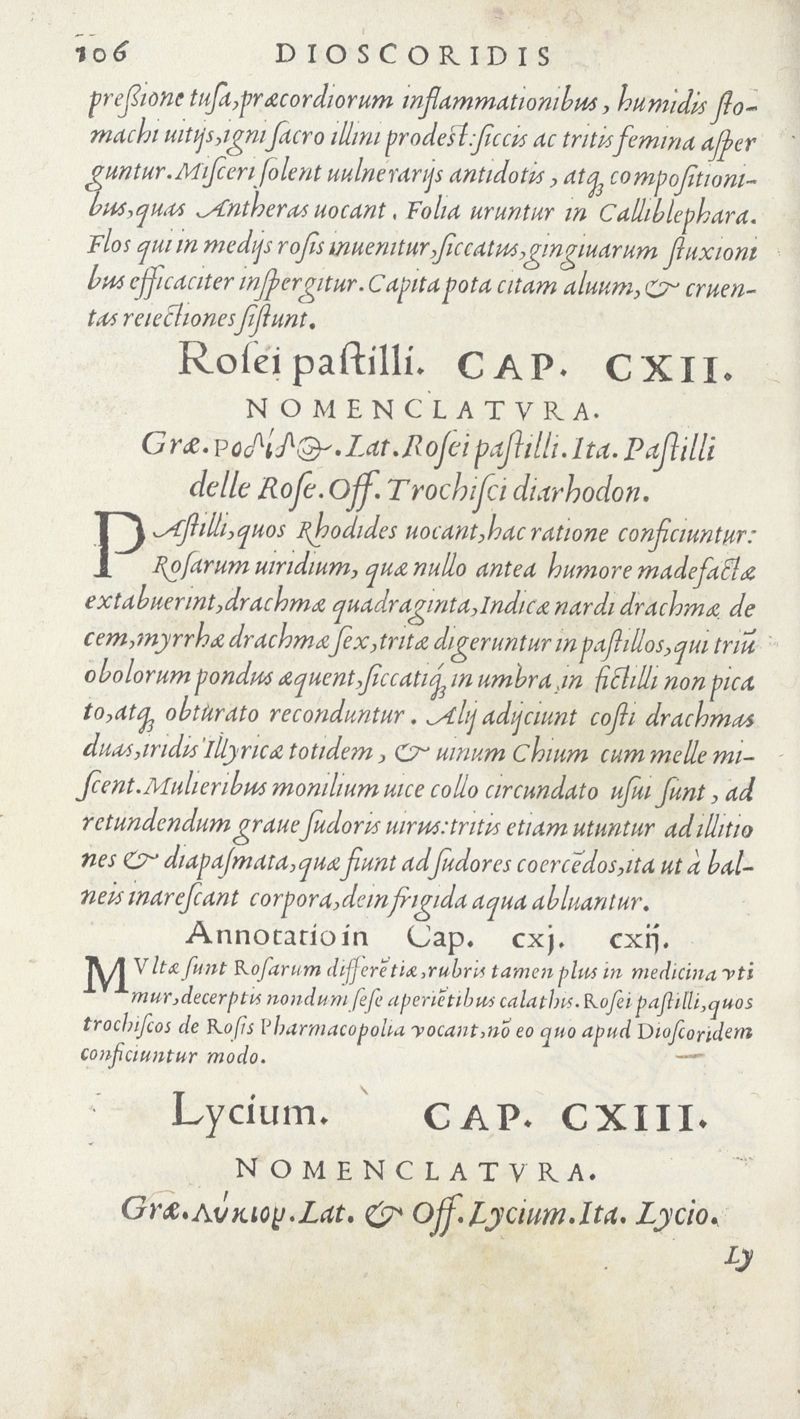 106 DIOSCORIDIS
preſsione tuſa, præcordiorum inflammationibus, humidis ſto-
machi uitijs, igni ſacro illini prodest: ſiccis ac tritis femina aſper
guntur. Miſceri ſolent uulnerarijs antidotis, atq; compoſitioni-
bus, quas Antheras uocant. Folia uruntur in Calliblephara.
Flos qui in medijs roſis inuenitur, ſiccatus, gingiuarum fluxioni
bus efficaciter inſpergitur. Capita pota citam aluum, & cruen-
tas reiectiones ſiſtunt.
Roſei paſtilli. CAP. CXII.
NOMENCLATVRA.
Græ. ῥοδίδες. Lat. Roſei paſtilli. Ita. Paſtilli
delle Roſe. Off. Trochiſci diarhodon.
PAſtilli, quos Rhodides uocant, hac ratione conficiuntur:
Roſarum uiridium, quæ nullo antea humore madefactæ
extabuerint, drachmæ quadraginta, Indicæ nardi drachmæ de
cem, myrrhæ drachmæ ſex, tritæ digeruntur in paſtillos, qui triū
obolorum pondus æquent, ſiccatiq́; in umbra, in fictilli non pica
to, atq; obturato reconduntur. Alij adijciunt coſti drachmas
duas, iridis Illyricæ totidem, & uinum Chium cum melle mi-
ſcent. Mulieribus monilium uice collo circundato uſui ſunt, ad
retundendum graue ſudoris uirus: tritis etiam utuntur ad illitio
nes & diapaſmata, quæ fiunt ad ſudores coercēdos, ita ut à bal-
neis inareſcant corpora, dein frigida aqua abluantur.
Annotatio in Cap. cxj. cxij.
MVltæ ſunt Roſarum differētiæ, rubris tamen plus in medicina vti
mur, decerptis nondum ſeſe aperiētibus calathis. Roſei paſtilli, quos
trochiſcos de Roſis Pharmacopolia vocant, nō eo quo apud Dioſcoridem
conficiuntur modo.
Lycium. CAP. CXIII.
NOMENCLATVRA.
Græ. Λύκιον. Lat. & Off. Lycium. Ita. Lycio.
Ly